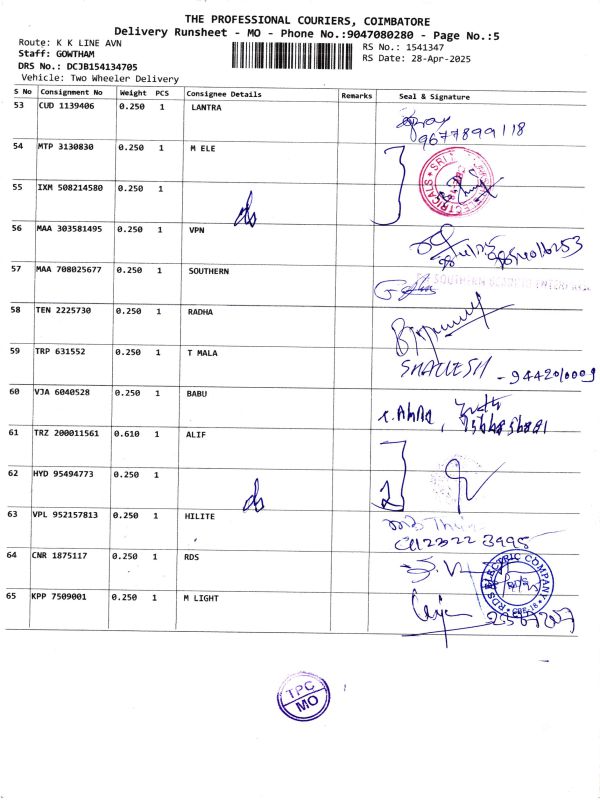 THE PROFESSIONAL COURIERS, COIMBATORE
Delivery Runsheet - MO - Phone No.:9047080280 - Page No.:5
Route: K K LINE AVN
Staff: GOWTHAM
DRS No.: DCJB154134705
Vehicle: Two Wheeler Delivery
RS No.: 1541347
RS Date: 28-Apr-2025
S No Consignment No Weight PCS Consignee Details Remarks Seal & Signature
53 CUD 1139406 0.250 1 LANTRA
9677899118
54 MTP 3130830 0.250 1 M ELE
55 IXM 508214580 0.250 1
56 MAA 303581495 0.250 1 VPN
57 MAA 708025677 0.250 1 SOUTHERN
58 TEN 2225730 0.250 1 RADHA
59 TRP 631552 0.250 1 T MALA
SHAILESH - 9442010009
60 VJA 6040528 0.250 1 BABU
61 TRZ 200011561 0.610 1 ALIF
62 HYD 95494773 0.250 1
2
63 VPL 952157813 0.250 1 HILITE
64 CNR 1875117 0.250 1 RDS
RDS ELECTRIC COMPANY
CBE-18
65 KPP 7509001 0.250 1 M LIGHT
TPC
MO